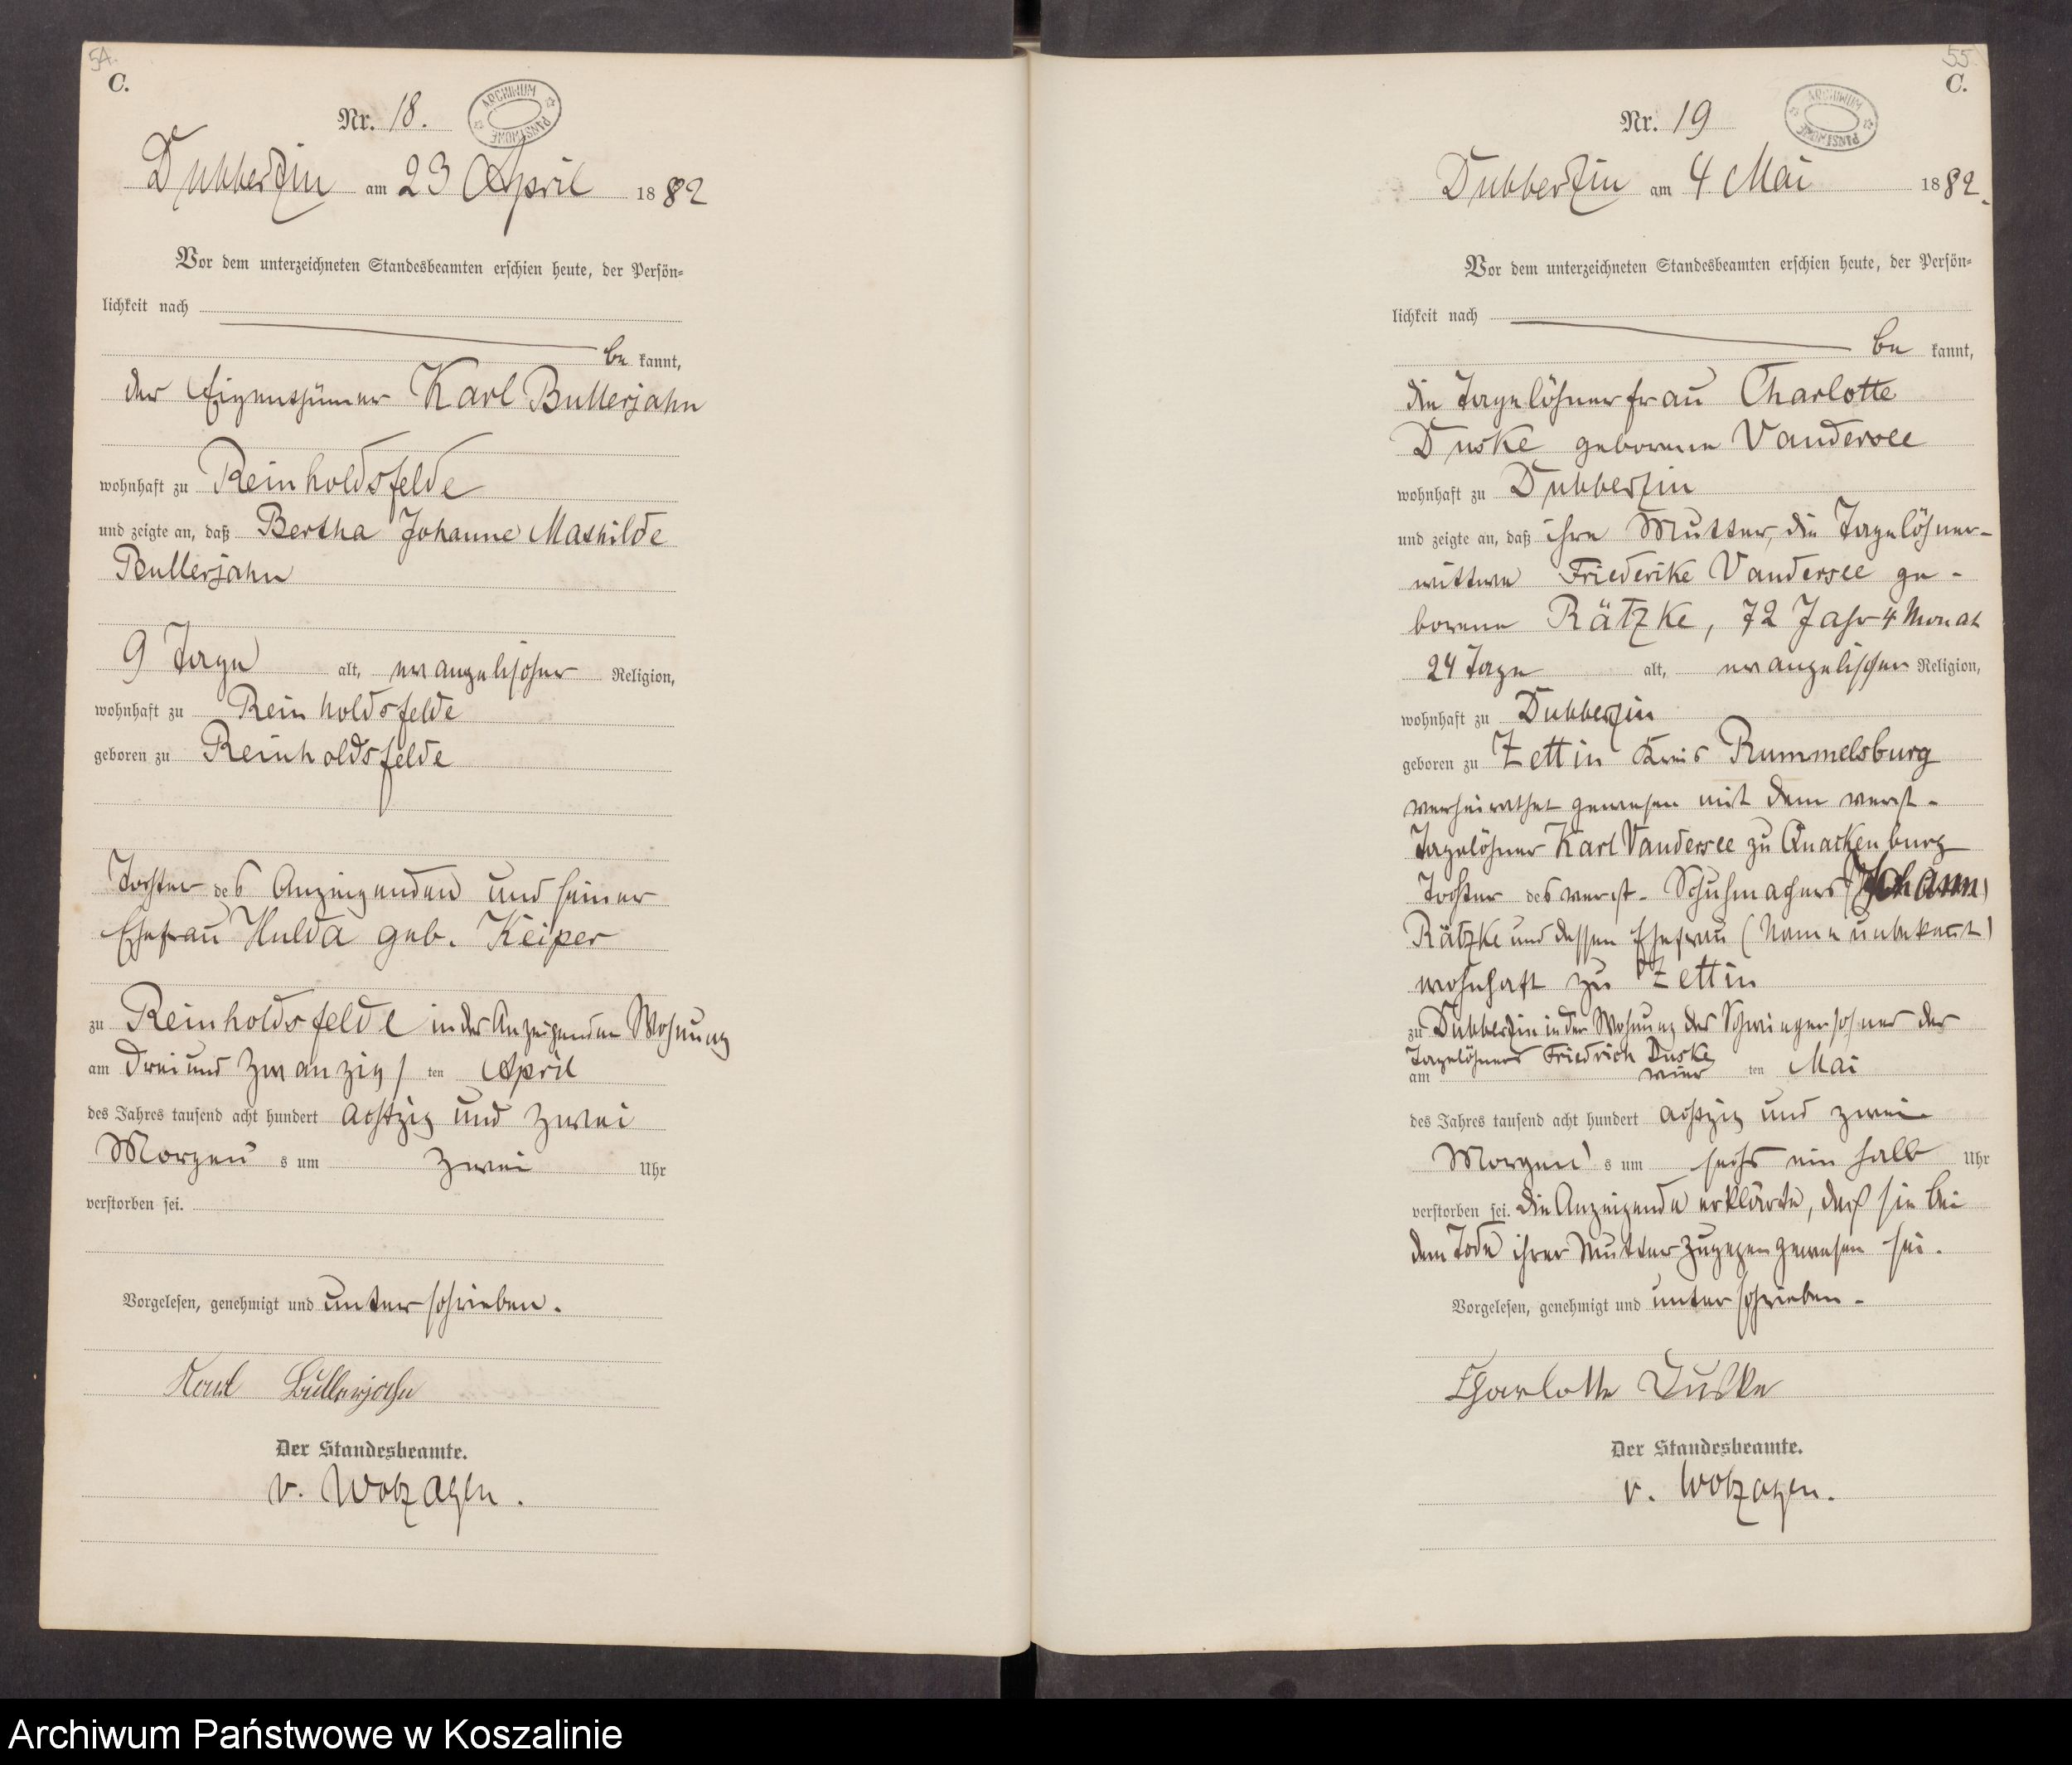 54.
C.
Nr. 18.
ARCHIWUM PAŃSTWOWE
Dubberzin am 23 April 1882
Vor dem unterzeichneten Standesbeamten erschien heute, der Persön-
lichkeit nach
be kannt,
der Eigenthümer Karl Bullerjahn
wohnhaft zu Reinholdsfelde
und zeigte an, daß Bertha Johanne Mathilde
Bullerjahn
9 Tage alt, evangelischer Religion,
wohnhaft zu Reinholdsfelde
geboren zu Reinholdsfelde
Tochter des Anzeigenden und seiner
Ehefrau Hulda geb. Keiper
zu Reinholdsfelde in des Anzeigenden Wohnung
am drei und zwanzig ten April
des Jahres tausend acht hundert achtzig und zwei
Morgens um zwei Uhr
verstorben sei.
Vorgelesen, genehmigt und unterschrieben.
Karl Bullerjahn
Der Standesbeamte.
v. Wolzogen.
55.
C.
Nr. 19
ARCHIWUM PAŃSTWOWE
Dubberzin am 4 Mai 1882.
Vor dem unterzeichneten Standesbeamten erschien heute, der Persön-
lichkeit nach
be kannt,
die Tagelöhnerfrau Charlotte
Duske geborene Vandersee
wohnhaft zu Dubberzin
und zeigte an, daß ihre Mutter, die Tagelöhner-
wittwe Friederike Vandersee ge-
borene Rätzke, 72 Jahr 4 Monat
24 Tage alt, evangelischer Religion,
wohnhaft zu Dubberzin
geboren zu Zettin Kreis Rummelsburg
verheirathet gewesen mit dem verst.
Tagelöhner Karl Vandersee zu Quackenburg
Tochter des verst. Schuhmachers Johann
Rätzke und dessen Ehefrau (Name unbekannt)
wohnhaft zu Zettin
zu Dubberzin in der Wohnung des Schwiegersohnes der
Tagelöhners Friedrich Duske
am vier ten Mai
des Jahres tausend acht hundert achtzig und zwei
Morgens um sechs ein halb Uhr
verstorben sei. Die Anzeigende erklärte, daß sie bei
dem Tode ihrer Mutter zugegen gewesen sei.
Vorgelesen, genehmigt und unterschrieben.
Charlotte Duske
Der Standesbeamte.
v. Wolzogen.
Archiwum Państwowe w Koszalinie